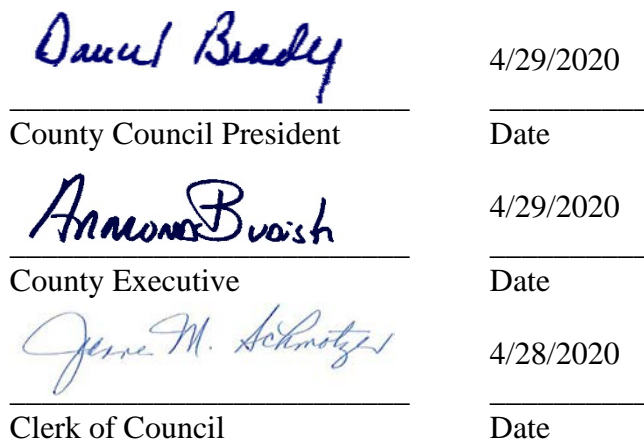 Daniel Brady 4/29/2020
County Council President Date
4/29/2020
County Executive Date
M. Schmotzer 4/28/2020
Clerk of Council Date